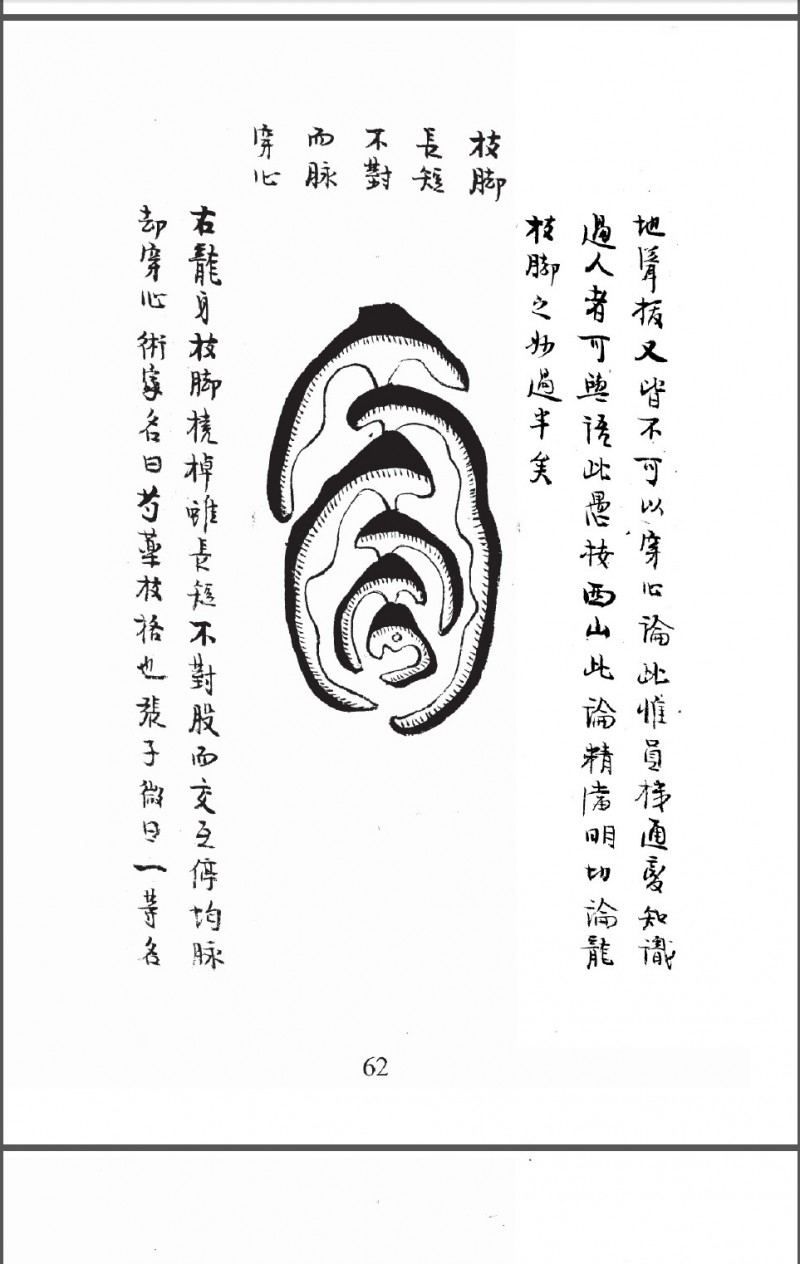 地聳拔又皆不可以穿心論此惟員機通變知識
過人者可與語此愚按西山此論精當明切論龍
枝脚之妙過半矣
枝脚
長短
不對
而脉
穿心
右龍身枝脚橈棹雖長短不對股而交互停均脉
却穿心術家名曰芍藥枝格也張子微曰一等名
62